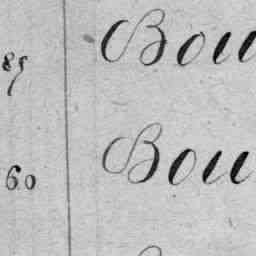 85 Bou
60 Bou